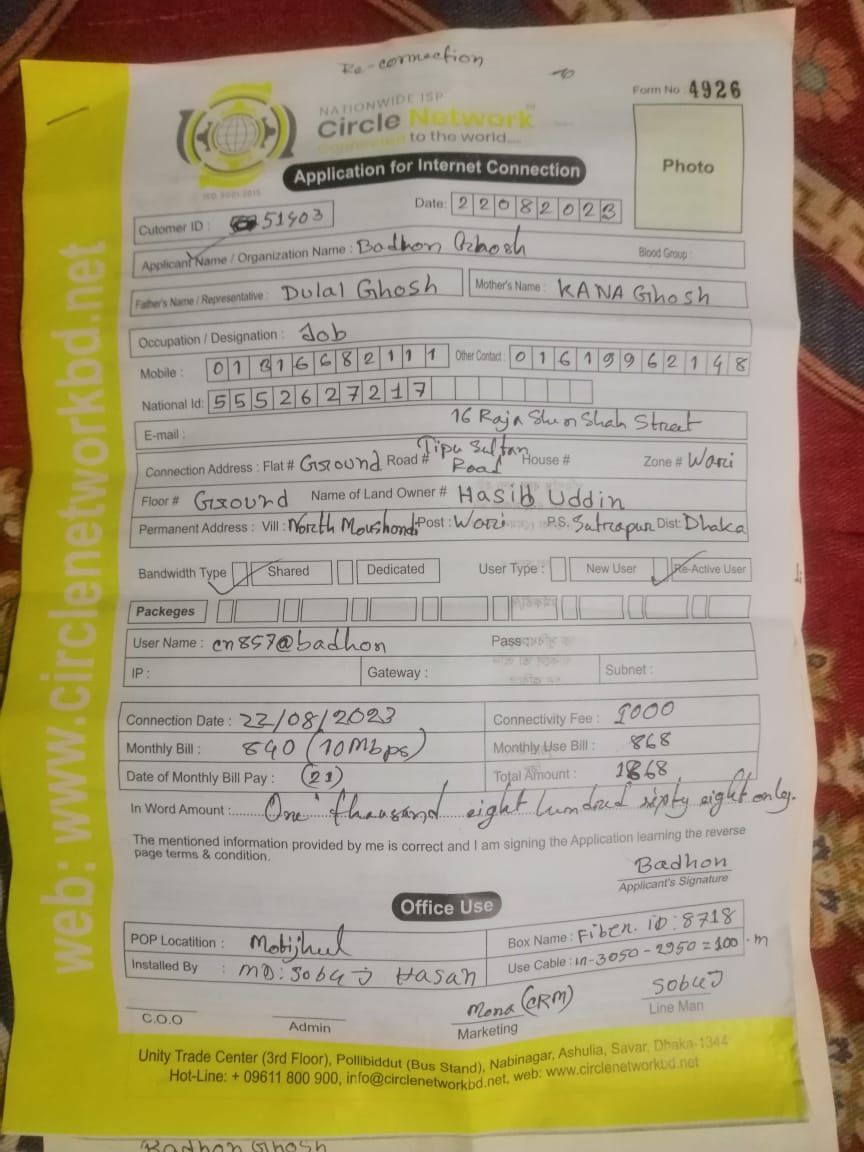 Re-connection
NATIONWIDE ISP
Circle Network™
Connected to the world....
ISO 9001:2015
Form No : 4926
Photo
Application for Internet Connection
Cutomer ID : 51903
Date: 22082023
Applicant Name / Organization Name : Badhon Ghosh Blood Group :
Father's Name / Representative : Dulal Ghosh Mother's Name : KANA Ghosh
Occupation / Designation : Job
Mobile : 01316682111 Other Contact : 01619962148
National Id: 5552627217
E-mail :
16 Raja Street
Connection Address : Flat # Ground Road # Tipu Sultan Road House # Zone # Wari
Floor # Ground Name of Land Owner # Hasib Uddin
Permanent Address : Vill : North Post : Wari P.S. Sutrapur Dist: Dhaka
Bandwidth Type Shared Dedicated User Type : New User Re-Active User
Packeges
User Name : cn857@badhon Pass
IP : Gateway : Subnet :
Connection Date : 22/08/2023 Connectivity Fee : 1000
Monthly Bill : 840 (10Mbps) Monthly Use Bill : 868
Date of Monthly Bill Pay : (21) Total Amount : 1868
In Word Amount :...... One thousand eight hundred sixty eight only.
The mentioned information provided by me is correct and I am signing the Application learning the reverse
page terms & condition.
Badhon
Applicant's Signature
Office Use
POP Locatition : Motijheel Box Name : Fiber. ID: 8718
Installed By : MD: Sobuj Hasan Use Cable : in-3050 - 2950 = 100 .m
Mona (CRM) Sobuj
C.O.O Admin Marketing Line Man
Unity Trade Center (3rd Floor), Pollibiddut (Bus Stand), Nabinagar, Ashulia, Savar, Dhaka-1344
Hot-Line: + 09611 800 900, info@circlenetworkbd.net, web: www.circlenetworkbd.net
web: www.circlenetworkbd.net
Badhon Ghosh